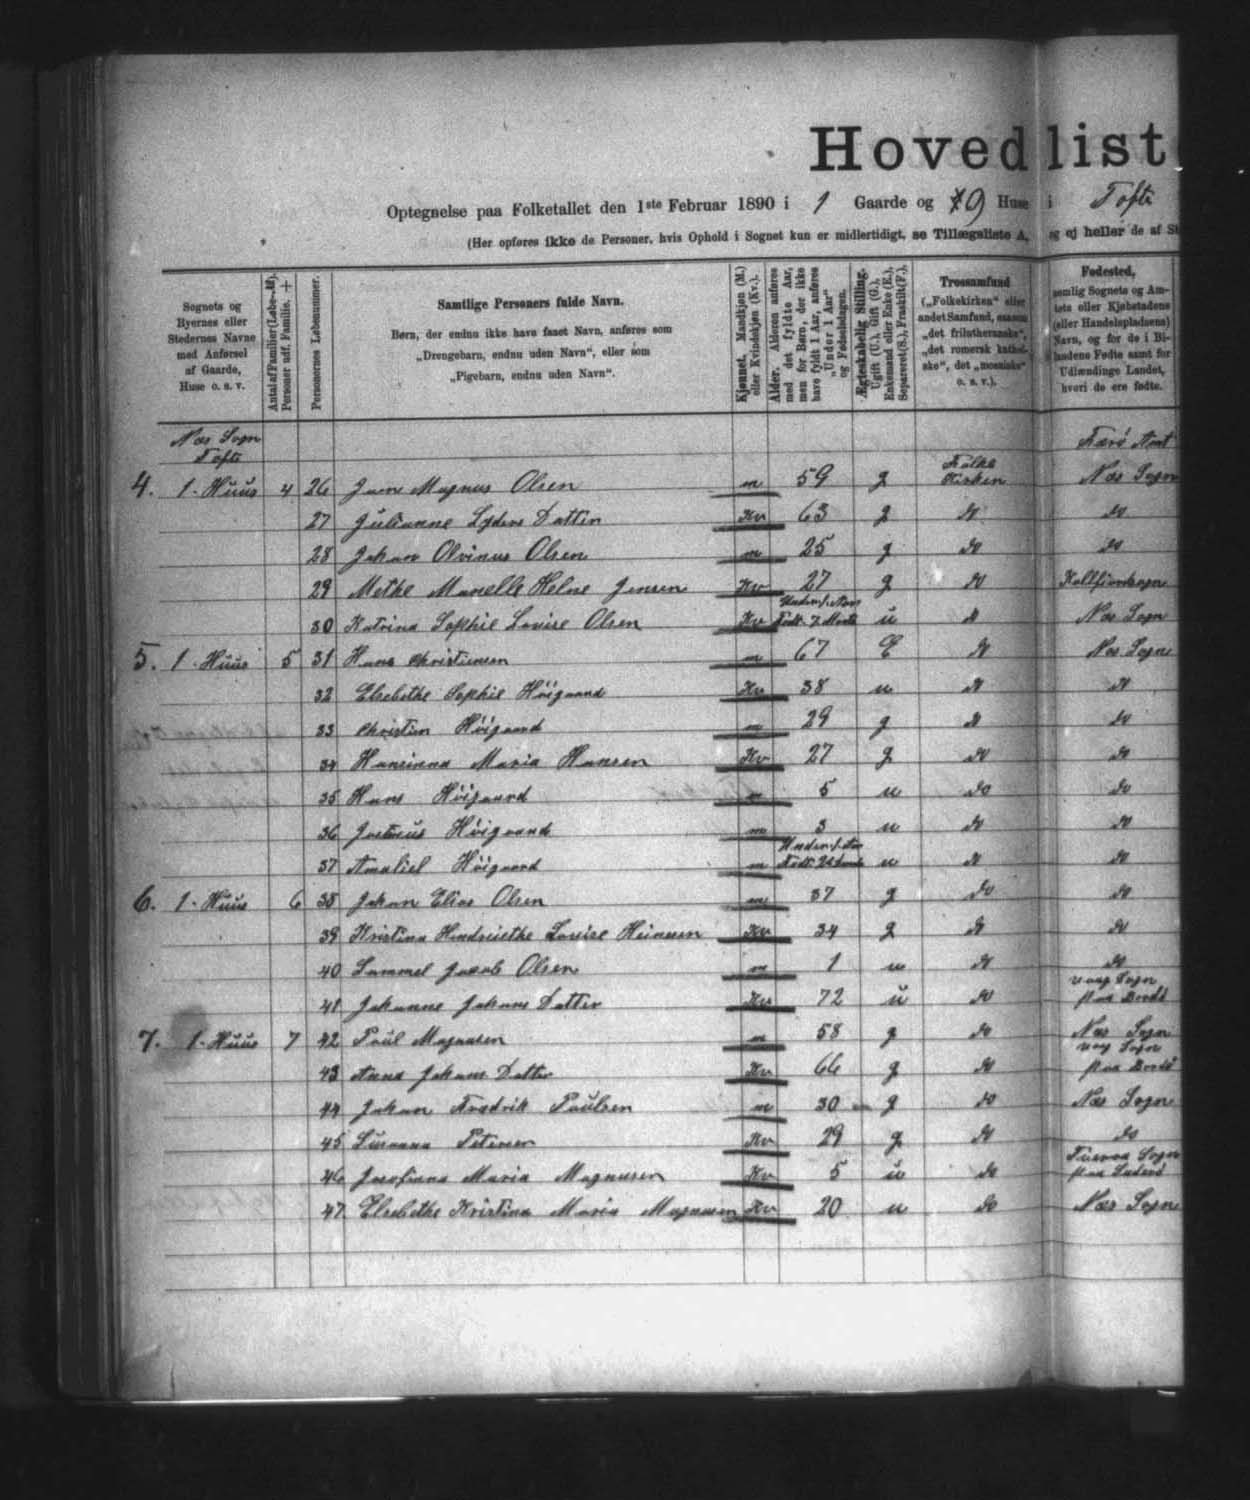 Hovedlist
Optegnelse paa Folketallet den 1ste Februar 1890 i 1 Gaarde og 9 Huse i Tofte
(Her opføres ikke de Personer, hvis Ophold i Sognet kun er midlertidigt, se Tillægsliste A, og ej heller de af St
Sognets og Byernes eller Stedernes Navne med Anførsel af Gaarde, Huse o. s. v.
Antal af Familier (Løbe-№). Personer udf. Familie. +
Personernes Løbenummer.
Samtlige Personers fulde Navn.
Børn, der endnu ikke have faaet Navn, anføres som
„Drengebarn, endnu uden Navn“, eller som
„Pigebarn, endnu uden Navn“.
Kjønnet. Mandkjøn (M.) eller Kvindekjøn (Kv.).
Alder. Alderen anføres med det fyldte Aar, men for Børn, der ikke have fyldt 1 Aar, anføres „Under 1 Aar“ og Fødselsdagen.
Ægteskabelig Stilling. Ugift (U.), Gift (G.), Enkemand eller Enke (E.), Separeret (S.), Fraskilt (F.).
Trossamfund
(„Folkekirken“ eller andet Samfund, saasom „det frilutheranske“, „det romersk katholske“, det „mosaiske“ o. s. v.).
Fødested,
nemlig Sognets og Amtets eller Kjøbstadens (eller Handelspladsens) Navn, og for de i Bilandene Fødte samt for Udlændinge Landet, hvori de ere fødte.
Næs Sogn Tofte Færø Amt
4. 1 Huus 4 26 Joen Magnus Olsen m 59 g Folke Kirken Næs Sogn
27 Julianne Lyders Datter Kv 63 g do do
28 Johan Olvinus Olsen m 25 g do do
29 Methe Marelle Helne Jensen Kv 27 g do Kollfiordsogn
30 Katrina Sophie Lovise Olsen Kv Under 1 Aar Født 7 Marts u do Næs Sogn
5. 1 Huus 5 31 Hans Christiansen m 67 E do Næs Sogn
32 Elsebethe Sophie Høigaard Kv 38 u do do
33 Christian Høigaard m 29 g do do
34 Hansinna Maria Hansen Kv 27 g do do
35 Hans Høigaard m 5 u do do
36 Høigaard m 3 u do do
37 Amaliel Høigaard m Under 1 Aar Født u do do
6. 1 Huus 6 38 Johan Elias Olsen m 37 g do do
39 Kristina Hendriethe Lovise Heinesen Kv 34 g do do
40 Sammel Jacob Olsen m 1 u do do
41 Johanne Johans Datter Kv 72 u do vaag Sogn paa Bordø
7. 1 Huus 7 42 Poul Magnusen m 58 g do Næs Sogn
43 Anna Johans Datter Kv 66 g do vaag Sogn paa Bordø
44 Johan Fredrik Poulsen m 30 g do Næs Sogn
45 Susanna Petersen Kv 29 g do do
46 Josefina Maria Magnusen Kv 5 u do Sogn paa Suderø
47 Elsebethe Kristina Maria Magnusen Kv 20 u do Næs Sogn